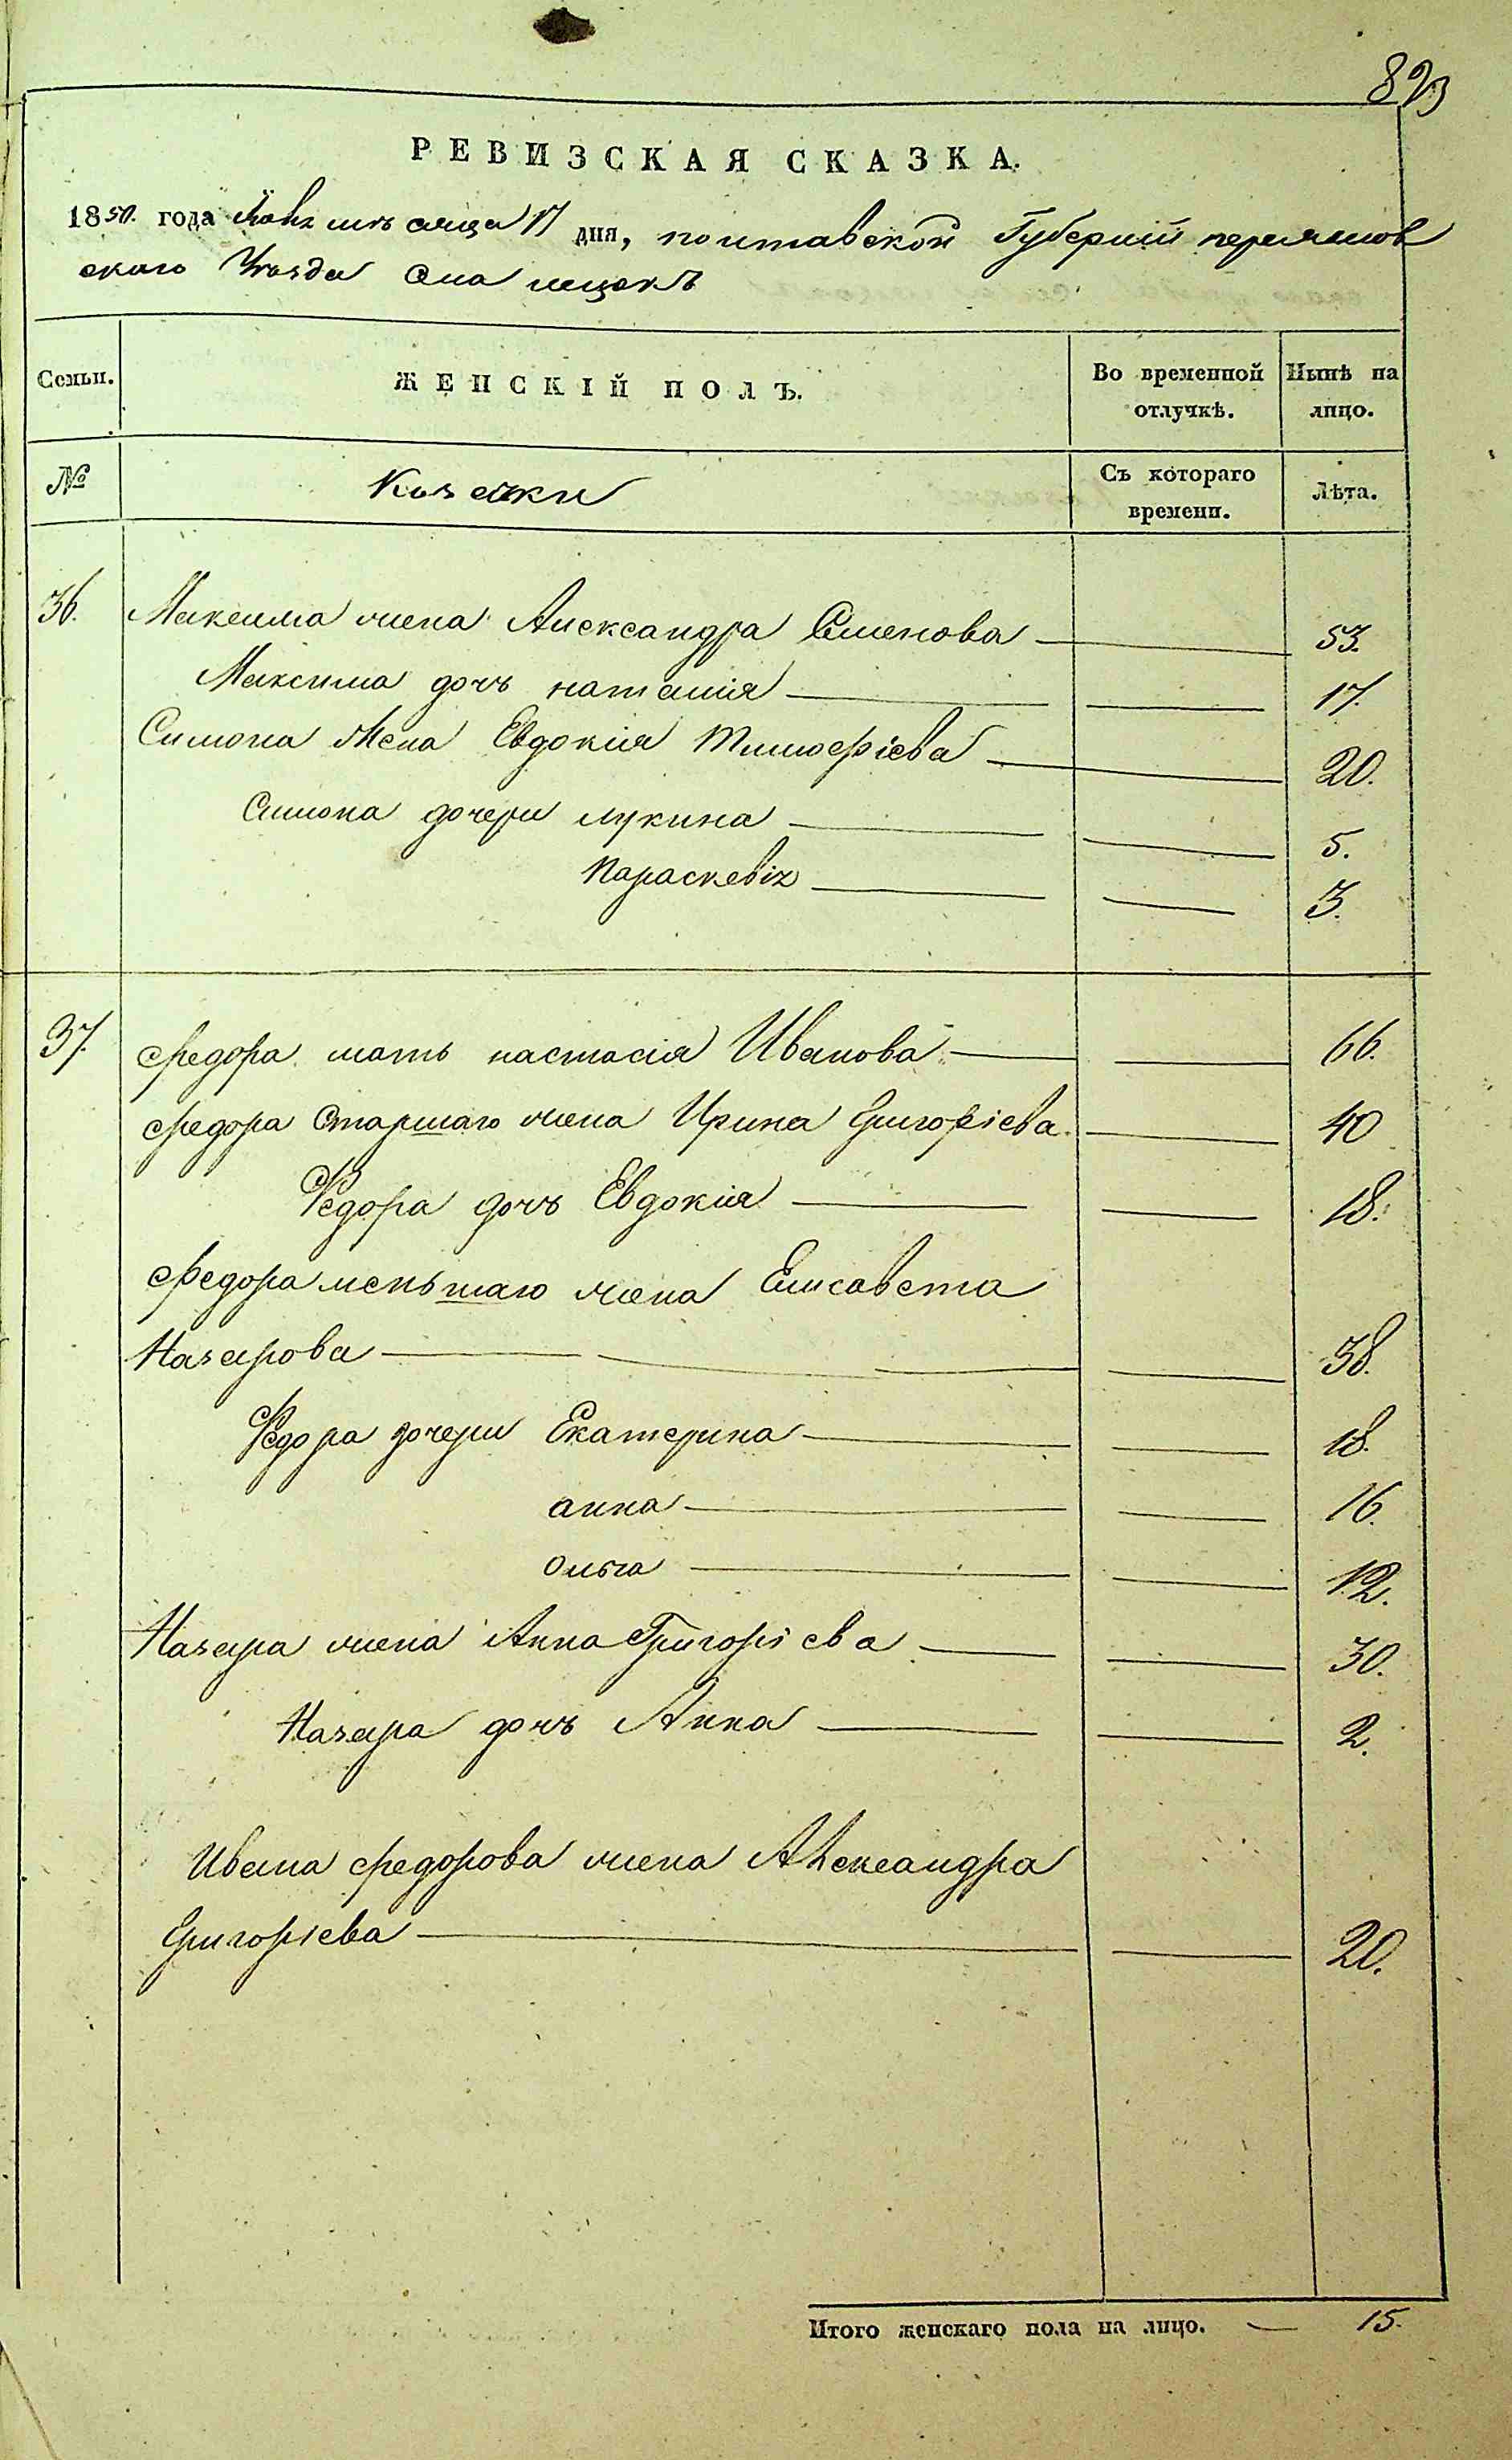 823
РЕВИЗСКАЯ СКАЗКА.
1850. года мѣсяца 17 дня, полтавской Губерніи переяслов
скаго Уезда Села
Семьи. ЖЕНСКІЙ ПОЛЪ. Во временной отлучкѣ. Нынѣ на лицо.
№ Козачки Съ котораго времени. Лѣта.
36. Максима жена Александра Семенова 53.
Максима дочь наталия 17.
Симона Жена Евдокия Тимофієва 20.
Симона дочери лукина 5.
Параскевія 3.
37. федора мать настасія Иванова 66.
федора Старшаго жена Ирина Григорієва. 40
Федора дочь Евдокія 18.
федора меньшаго жена Елисавета
Назарова 38.
Федора дочери Екатерина 18.
анна 16.
Ольга 12.
Назара жена Анна Григорієва 30.
Назара дочь Анна 2.
Ивана федорова жена Александра
Григорієва 20.
Итого женскаго пола на лицо. 15.